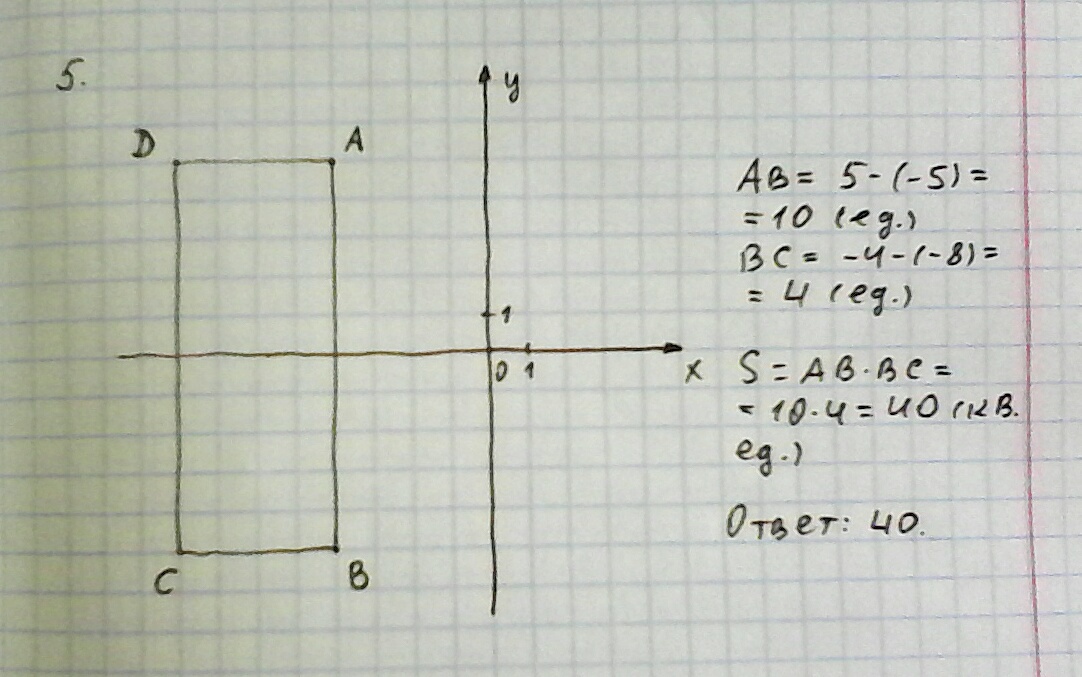 5.
y
D
A
1
0
1
x
C
B
AB = 5 - (-5) =
= 10 (ед.)
BC = -4 - (-8) =
= 4 (ед.)
S = AB · BC =
= 10 · 4 = 40 (кв.
ед.)
Ответ: 40.